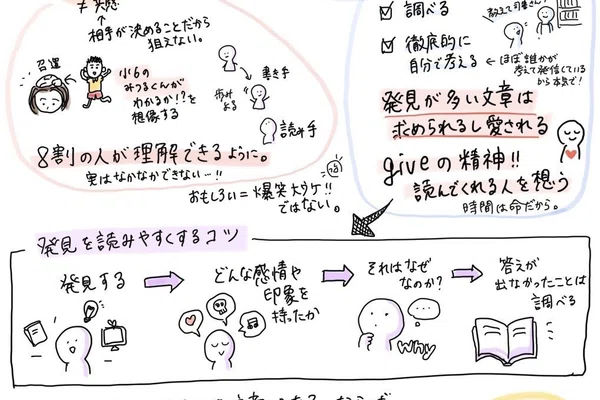 ≠ 共感
↑
相手が決めることだから
狙えない。
召運
小6の
みつるくんが
わかるか!?を
想像する
書き手
歩み
よる
読み手
8割の人が理解できるように。
実はなかなかできない…!!
おもしろい=爆笑大ウケ!!
ではない。
調べる
教えて司書さん!
徹底的に
自分で考える
←ほぼ誰かが
考えて発信している
から本気で!
発見が多い文章は
求められるし愛される
giveの精神!!
読んでくれる人を想う
時間は命だから。
発見を読みやすくするコツ
発見する
どんな感情や
印象を
持ったか
それはなぜ
なのか?
why
答えが
出なかったことは
調べる